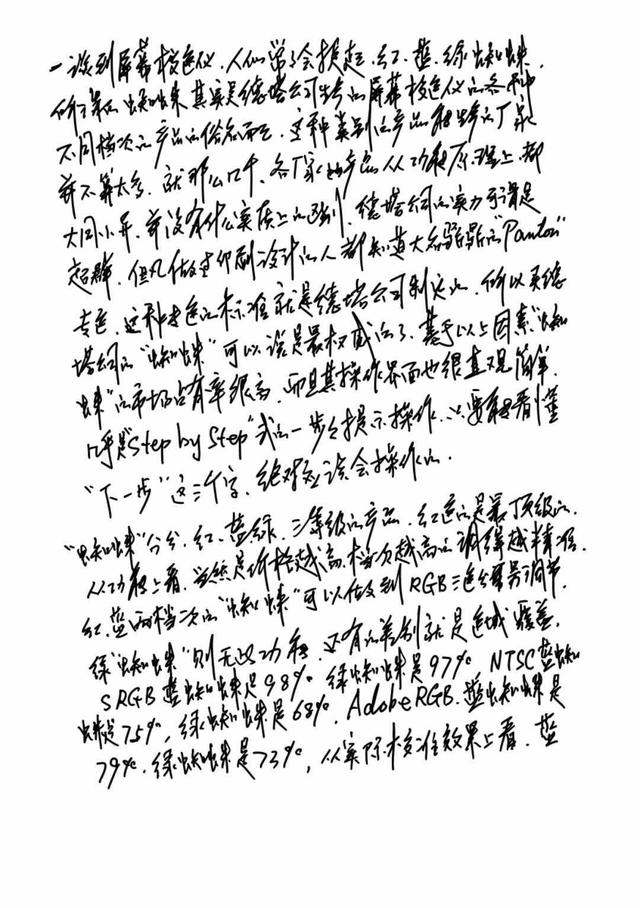 一谈到屏幕校色仪，人们常常会提起，红、蓝、绿蜘蛛，
所谓的蜘蛛其实是德塔公司生产的屏幕校色仪的各种
不同档次的产品的俗名而已，这种类别的产品和生产的厂家
并不算太多，就那么几个，各厂家的产品从功能原理上都
大同小异，并没有什么实质上的区别，德塔公司的实力可谓是
超群，但凡做过印刷设计的人都知道大名鼎鼎的"Panton"
专色，这种专色的标准就是德塔公司制定的，所以系德
塔公司的"蜘蛛"可以说是最权威的了，基于以上因素"蜘
蛛"的市场占有率很高，而且其操作界面也很直观简单，
几乎是"Step by Step"式的一步步提示操作，只要能看懂
"下一步"这三个字，绝对应该会操作的。
"蜘蛛"分为，红、蓝绿，三等级的产品，红色的是最顶级的，
从功能上看，当然是价格越高，档次越高的调得越精准，
红，蓝两档次的"蜘蛛"可以做到RGB三色分别调节，
绿"蜘蛛"则无此功能，还有的差别就是色域覆盖，
SRGB蓝蜘蛛是98%，绿蜘蛛是97%，NTSC蓝蜘
蛛是75%，绿蜘蛛是68%，AdobeRGB，蓝蜘蛛是
79%，绿蜘蛛是73%，从实际校准效果上看，蓝